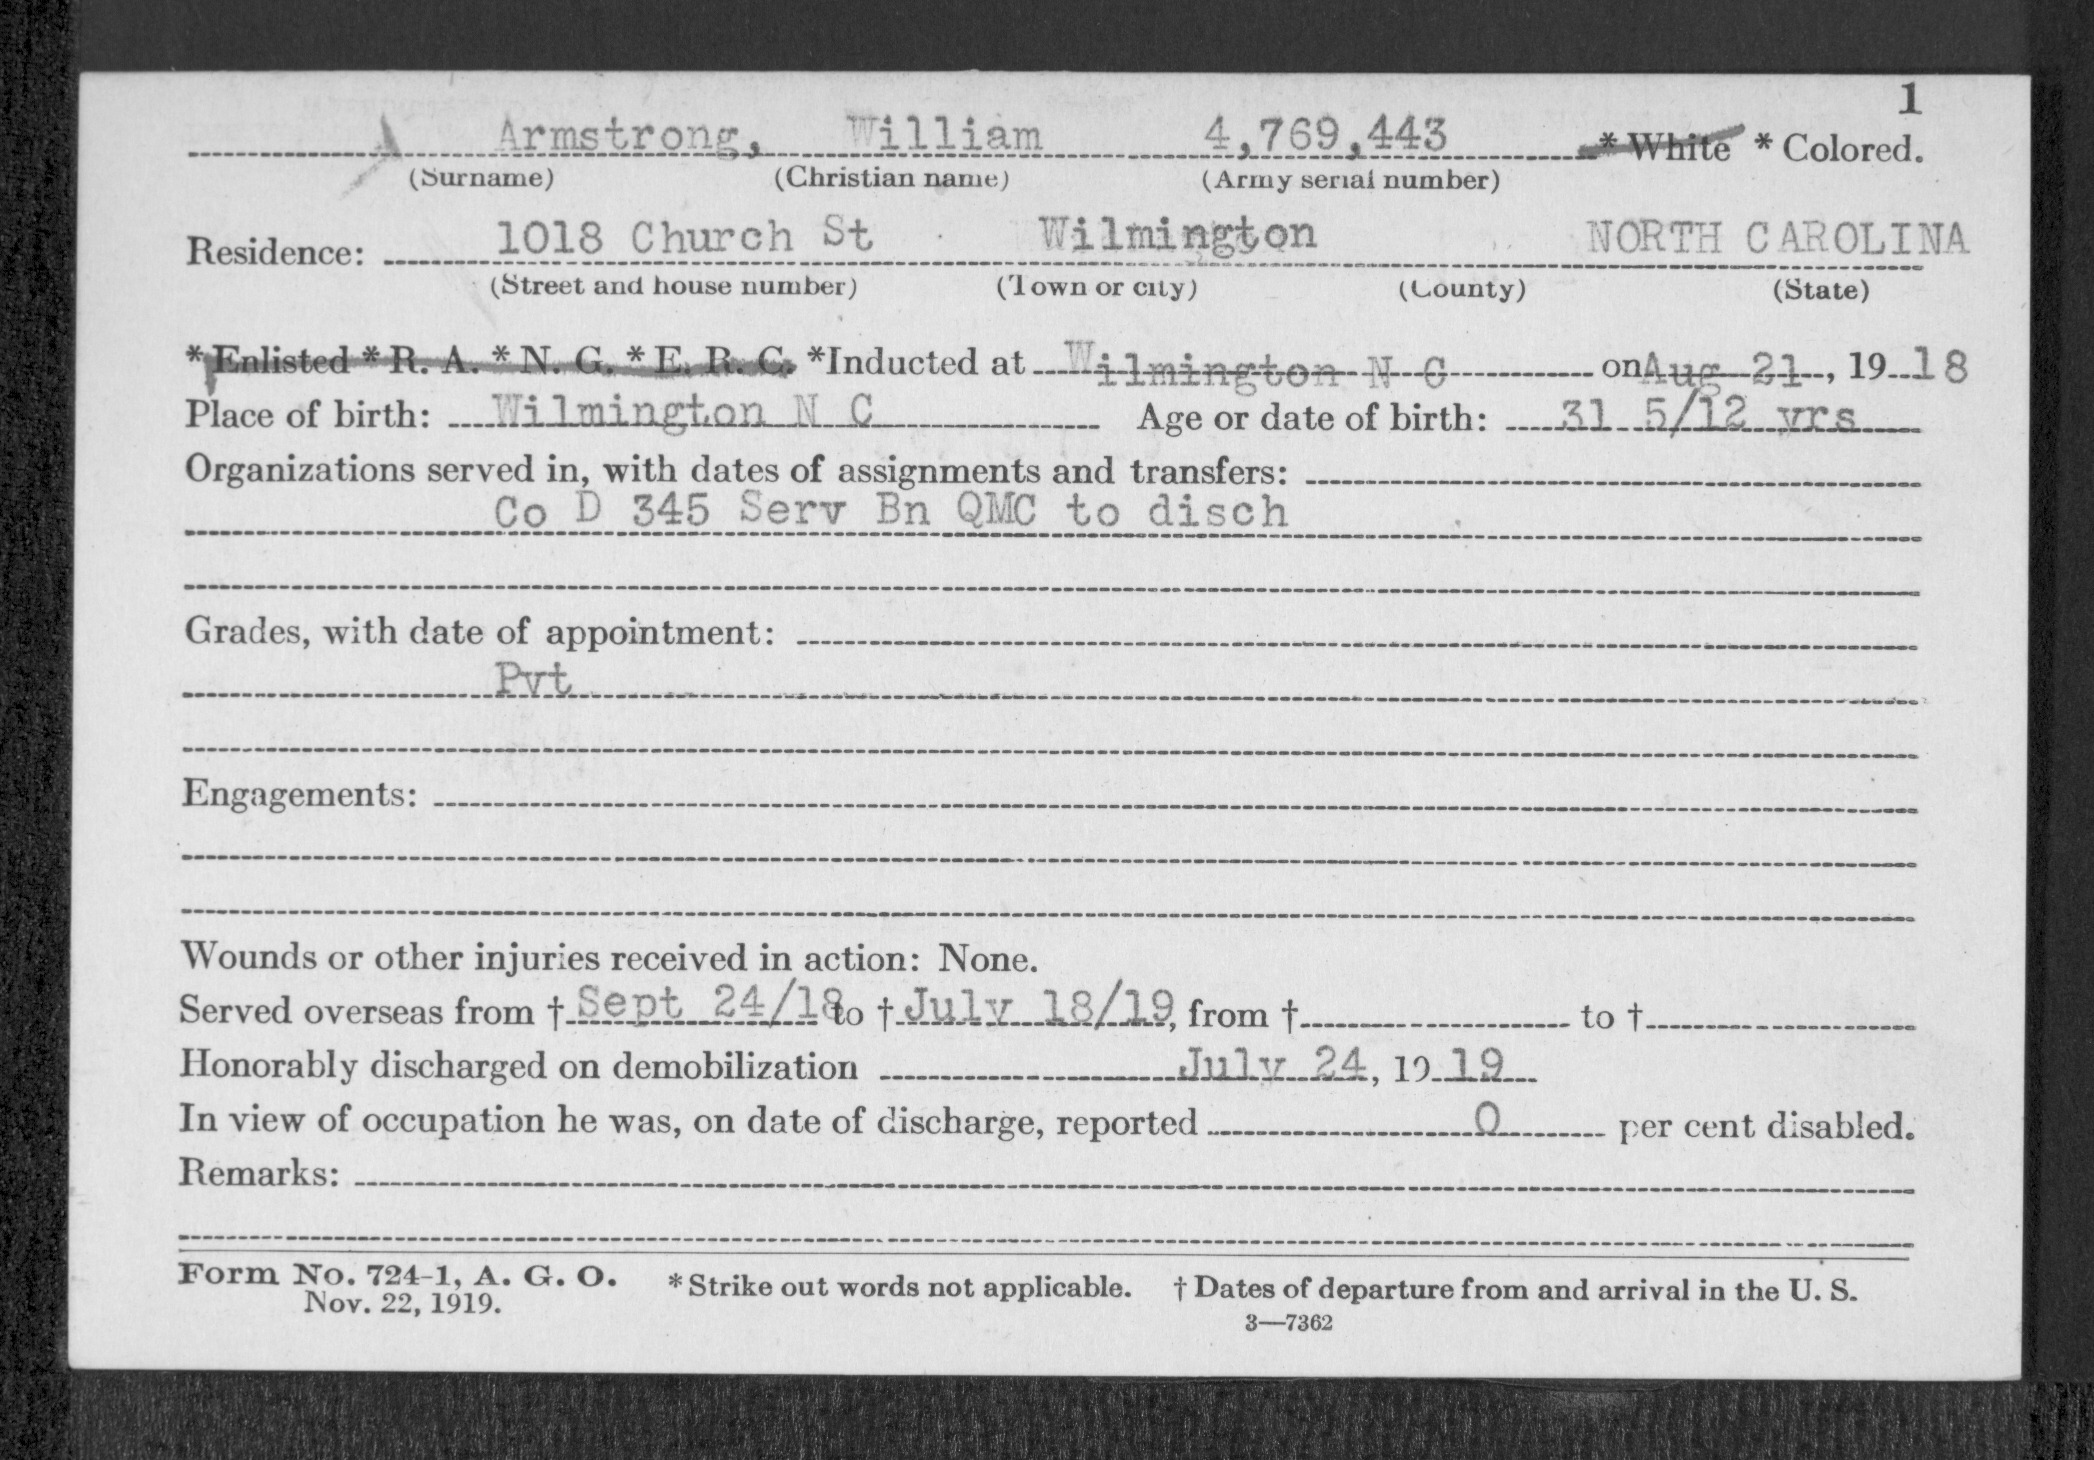 1
Armstrong, William 4,769,443 * White * Colored.
(Surname) (Christian name) (Army serial number)
Residence: 1018 Church St Wilmington NORTH CAROLINA
(Street and house number) (Town or city) (County) (State)
* Enlisted * R. A. * N. G. * E. R. C. * Inducted at Wilmington N C on Aug 21, 1918
Place of birth: Wilmington N C Age or date of birth: 31 5/12 yrs
Organizations served in, with dates of assignments and transfers:
Co D 345 Serv Bn QMC to disch
Grades, with date of appointment:
Pvt
Engagements:
Wounds or other injuries received in action: None.
Served overseas from † Sept 24/18 to † July 18/19, from † to †
Honorably discharged on demobilization July 24, 1919
In view of occupation he was, on date of discharge, reported 0 per cent disabled.
Remarks:
Form No. 724-1, A. G. O. * Strike out words not applicable. † Dates of departure from and arrival in the U. S.
Nov. 22, 1919.
3—7362